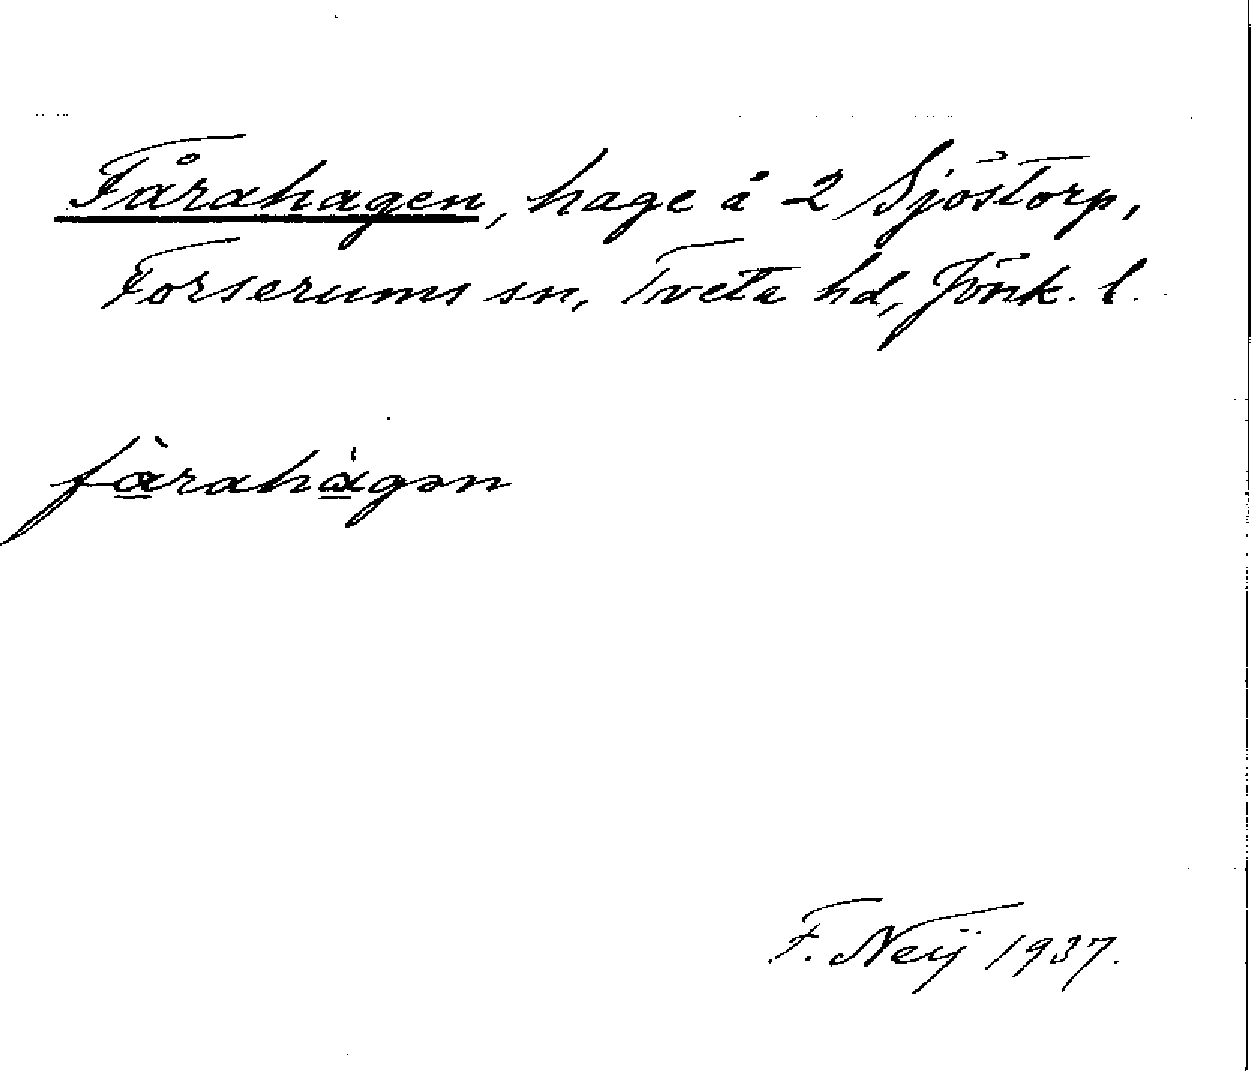 Fårahagen, hage å 2 Sjöstorp,
Forserums sn, Tveta hd, Jönk. l.
fàrahágən
F. Neij 1937.